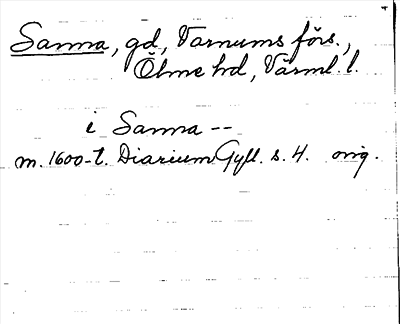 Sanna, gd, Varnums förs.,
Ölme hd, Värml. l.
i Sanna --
m. 1600-t. Diarium Gyll. s. 4. orig.